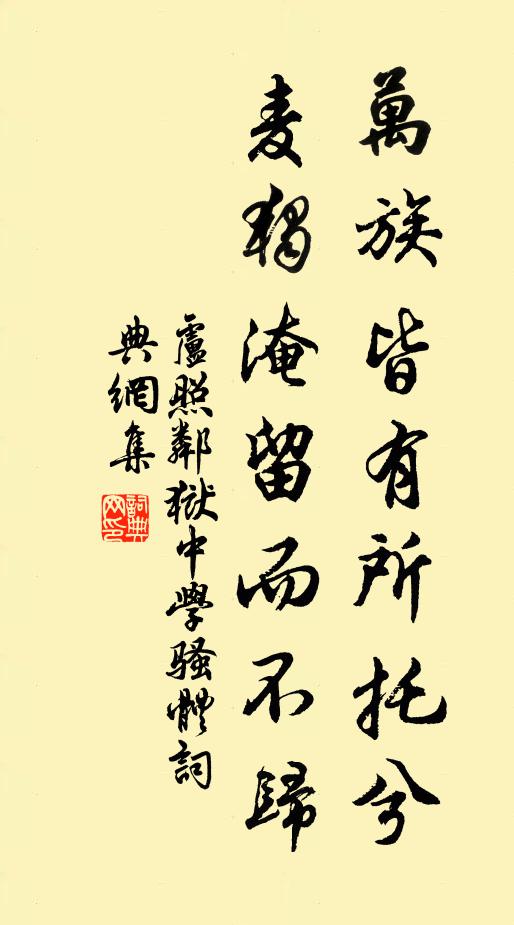 萬族皆有所托兮
麦獨淹留而不歸
盧照鄰獄中學騷體詞
典網集
詞典
网印